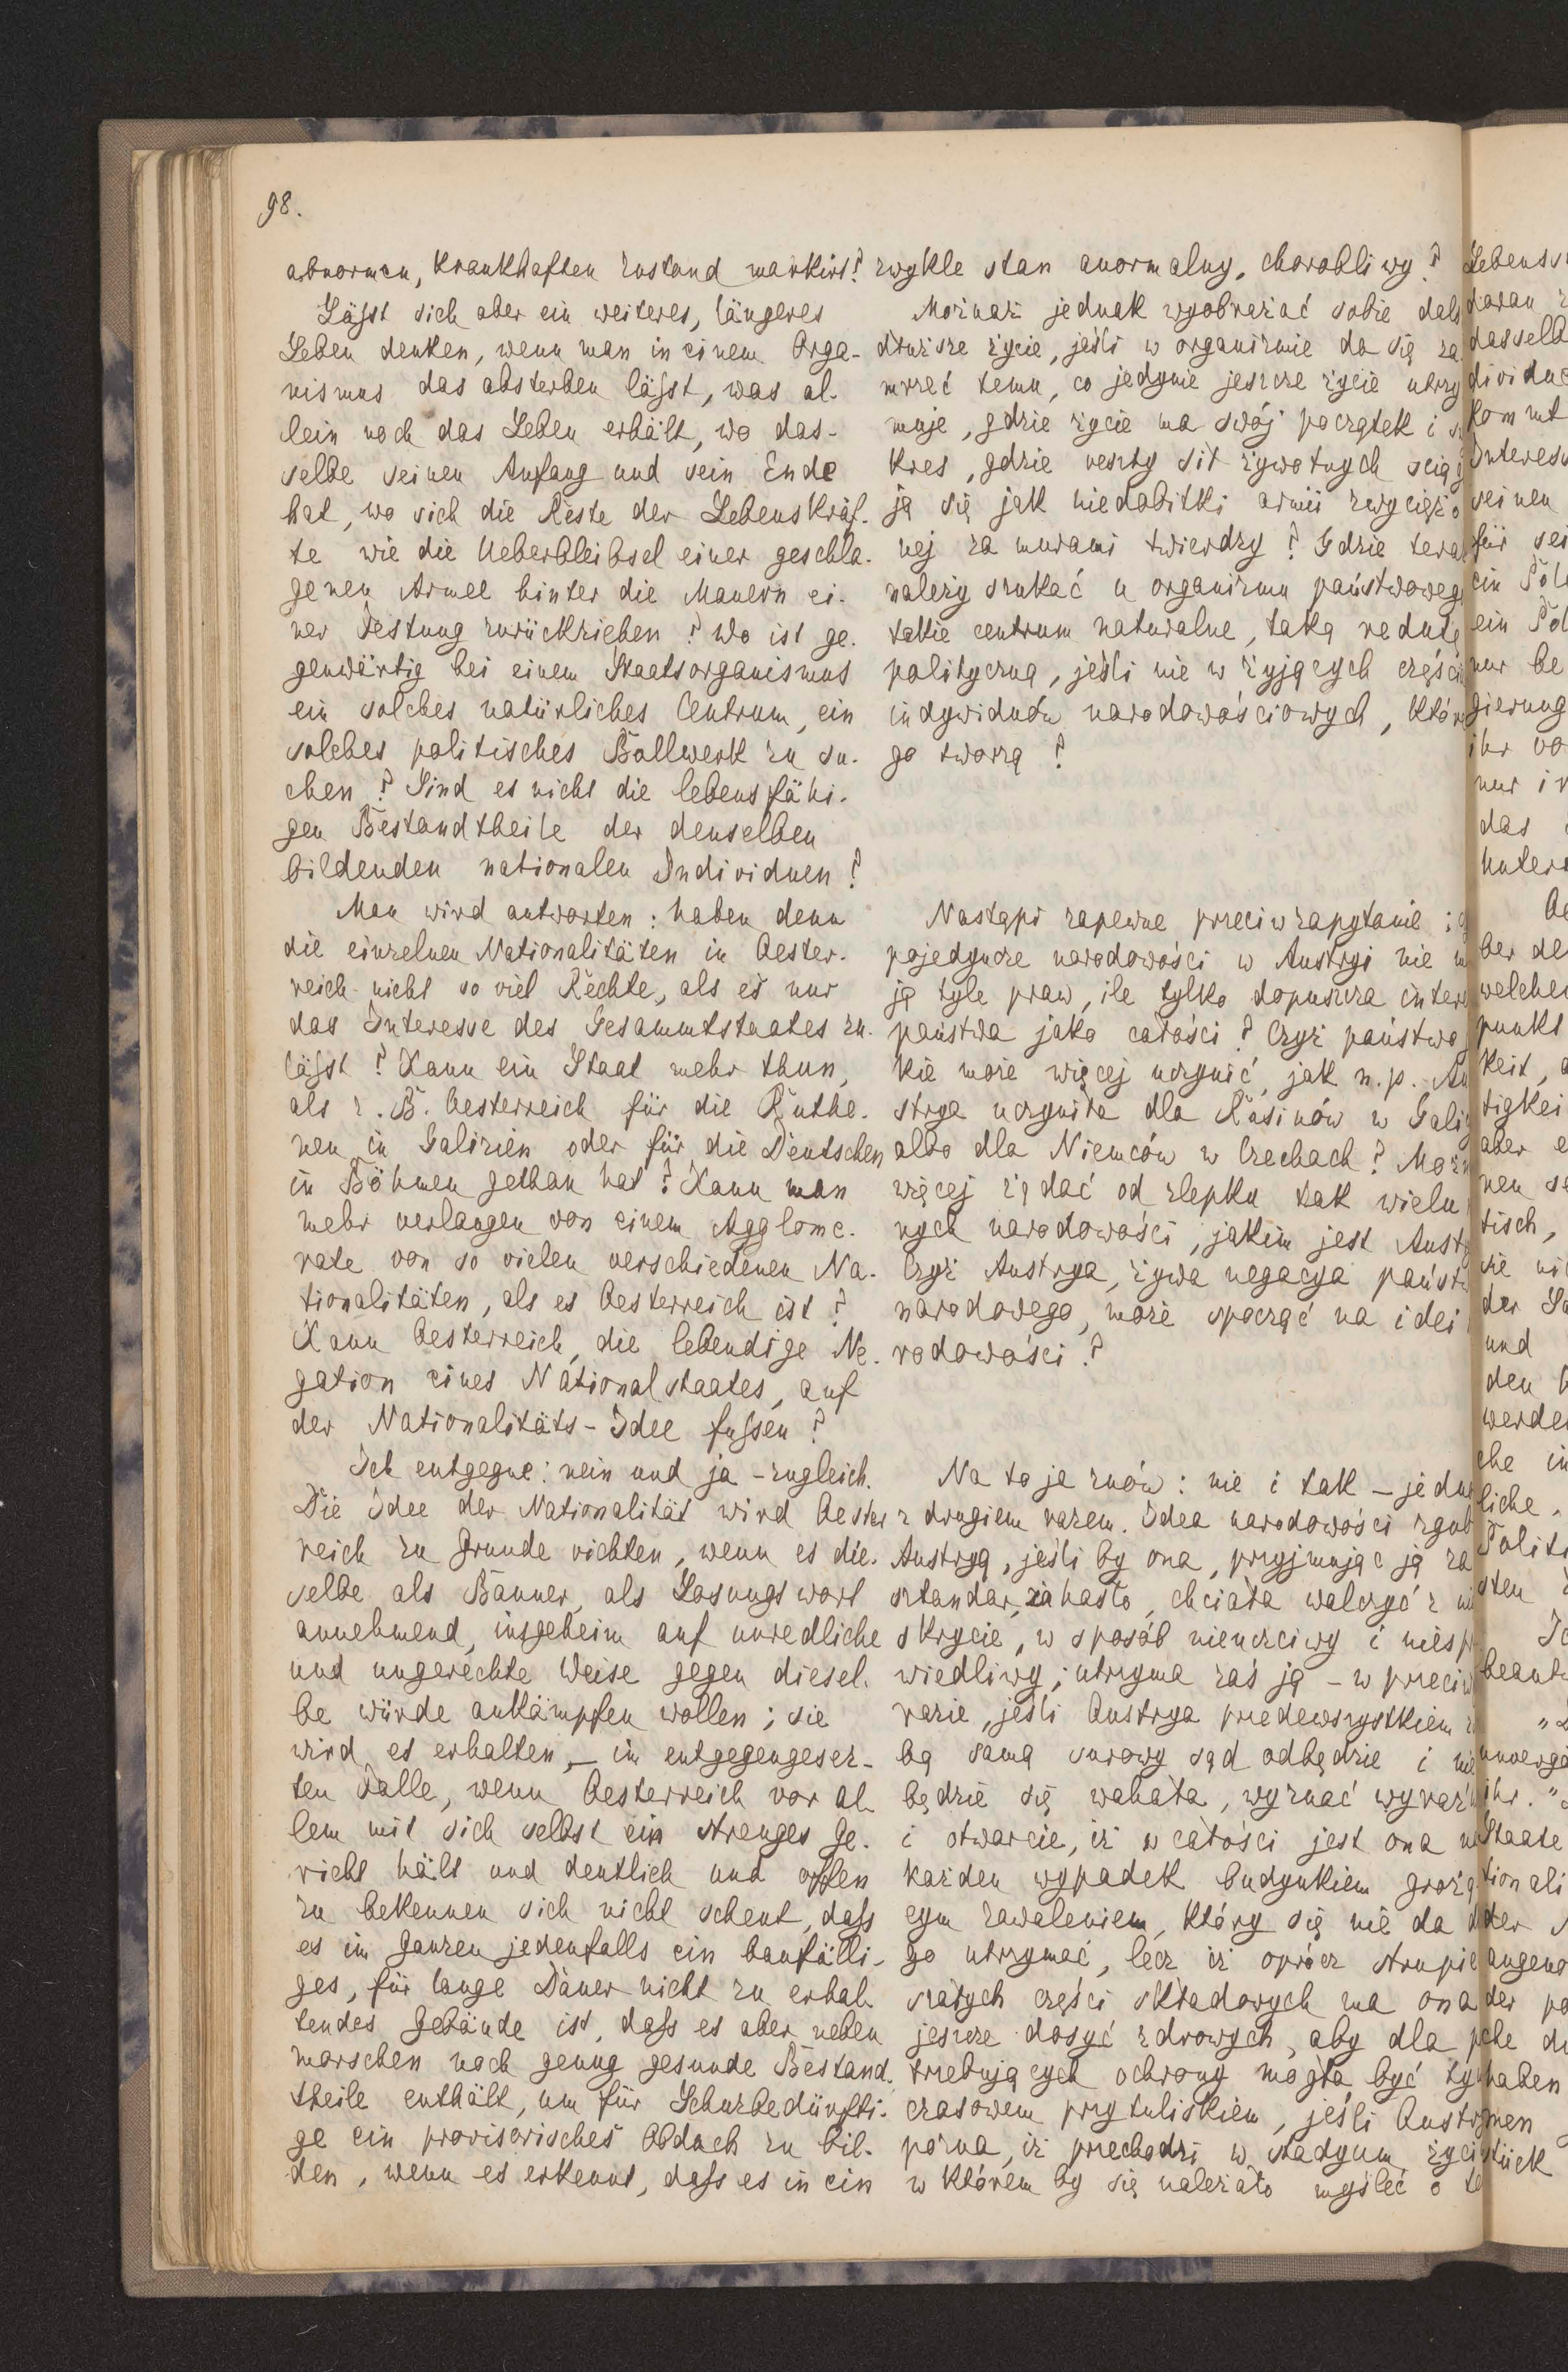 98.
abnormen, krankhaften Zustand markirt?
Läßst sich aber ein weiteres, längeres
Leben denken, wenn man in einem Orga-
nismus das absterben läßst, was al-
lein noch das Leben erhält, wo das-
selbe seinen Anfang und sein Ende
hat, wo sich die Reste der Lebenskräf-
te wie die Ueberbleibsel einer geschla-
genen Armee hinter die Mauern ei-
ner Festung zurückziehen? Wo ist ge-
genwärtig bei einem Staatsorganismus
ein solches natürliches Centrum, ein
solches politisches Bollwerk zu su-
chen? Sind es nicht die lebensfähi-
gen Bestandtheile der denselben
bildenden nationalen Individuen?
Man wird antworten: haben denn
die einzelnen Nationalitäten in Oester-
reich nicht so viel Rechte, als es nur
das Interesse des Gesammtstaates zu-
läßst? Kann ein Staat mehr thun,
als z. B. Oesterreich für die Ruthe-
nen in Galizien oder für die Deutschen
in Böhmen gethan hat? Kann man
mehr verlangen von einem Agglome-
rate von so vielen verschiedenen Na-
tionalitäten, als es Oesterreich ist?
Kann Oesterreich, die lebendige Ne-
gation eines Nationalstaates, auf
der Nationalitäts-Idee fußsen?
Ich entgegne: nein und ja - zugleich.
Die Idee der Nationalität wird Oester
reich zu Grunde richten, wenn es die-
selbe als Banner, als Losungswort
annehmend, insgeheim auf unredliche
und ungerechte Weise gegen diesel-
be würde ankämpfen wollen; sie
wird es erhalten, – im entgegengesez-
ten Falle, wenn Oesterreich vor al-
lem mit sich selbst ein strenges Ge-
richt hält und deutlich und offen
zu bekennen sich nicht scheut, daß
es im Ganzen jedenfalls ein baufälli-
ges, für lange Dauer nicht zu erhal-
tendes Gebäude ist, daß es aber neben
morschen noch genug gesunde Bestand-
theile enthält, um für Schuzbedürfti-
ge ein provisorisches Obdach zu bil-
den, wenn es erkennt, daß es in ein
zwykle stan anormalny, chorobliwy?
Możnaż jednak wyobrażać sobie dals
dłuższe życie, jeśli w organizmie da się za
mrzeć temu, co jedynie jeszcze życie utrzy
muje, gdzie życie ma swój początek i s
kres, gdzie reszty sił żywotnych ścią
ją się jak niedobitki armii zwycięzo
nej za murami twierdzy? Gdzie tera
należy szukać u organizmu państwoweg
takie centrum naturalne, taką redutę
polityczną, jeśli nie w żyjących częśc
indywiduów narodowościowych, któr
go tworzą?
Nastąpi zapewne przeciwzapytanie: c
pojedyncze narodowości w Austryi nie m
ją tyle praw, ile tylko dopuszcza inter
państwa jako całości? Czyż państwo
kie może więcej uczynić, jak n.p. Au
strya uczyniła dla Rusinów w Gali
albo dla Niemców w Czechach? Moż
więcej żądać od zlepku tak wielu
nych narodowości, jakim jest Aust
Czyż Austrya, żywa negacya państ
narodowego, może spocząć na idei
rodowości?
Na to ja znów: nie i tak – jedn
z drugiem razem. Idea narodowości zgub
Austryą, jeśli by ona, przyjmując ją za
sztandar, za hasło, chciała walczyć z ni
skrycie, w sposób nieuczciwy i niesp
wiedliwy; utrzyma zaś ją – w przeciw
razie, jeśli Austrya przedewszystkiem z
bą samą surowy sąd odbędzie i nie
będzie się wahała, wyznać wyraź
i otwarcie, iż w całości jest ona na
każden wypadek budynkiem grożą
cym zawaleniem, który się nie da d
go utrzymać, lecz iż oprócz strupie
szałych części składowych ma ona
jeszcze dosyć zdrowych, aby dla p
trzebujących ochrony mogła być ty
czasowem przytuliskiem, jeśli Austr
pozna, iż przechodzi w stadyum życi
w którem by się należało myśleć o te
Lebenss
daran
dasselb
dividue
kommt
Interess
seinen
für sei
ein Pol
ein Pol
nur be
gierung
ihr vo
nur i
das
Unter
ber de
welche
punkt
keit,
tigkei
aber e
nen se
tisch,
sie ni
der
und
den
werde
che in
liche
Politi
sten
beant
unverg
ihr."
Staate
tionali
der
angeno
der po
che
haben
men
stück